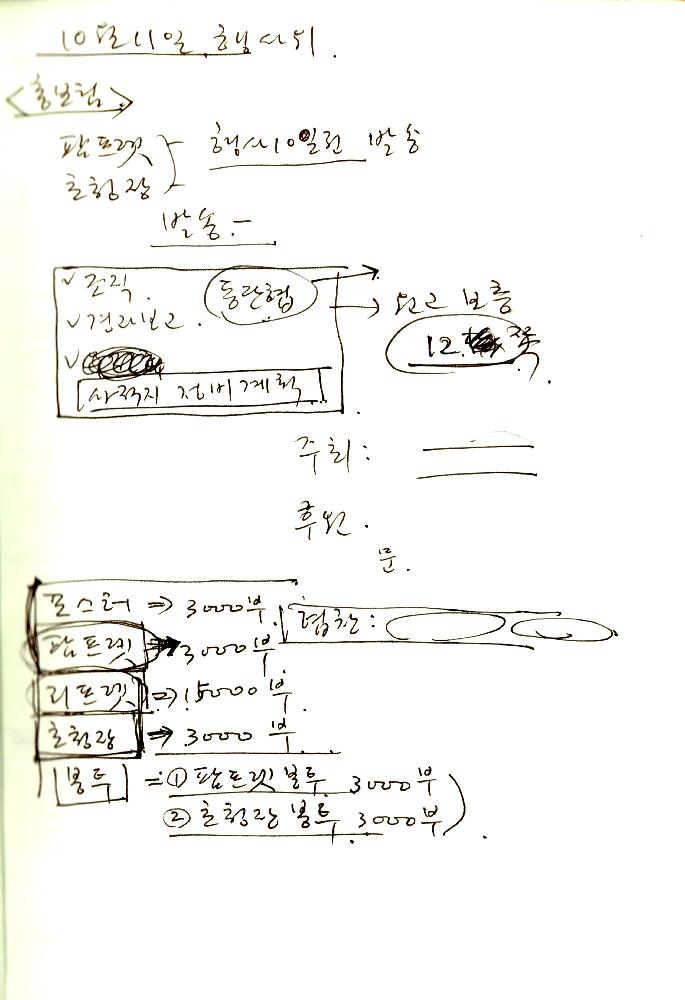 10월 11일 행사위.
<홍보팀>
팜프렛
초청장
행사 10일전 발송
발송:-
✓조직.
동단협
✓결과보고.
원고 보충
✓
12.
사적지 정비계획.
주최:
후원.
문.
포스터 ⇒ 3000부.
협찬:
팜프렛 → 3000부
리프렛 ⇒ 15000부.
초청장 ⇒ 3000부.
봉투 = ① 팜프렛 봉투 3000부
② 초청장 봉투 3000부.